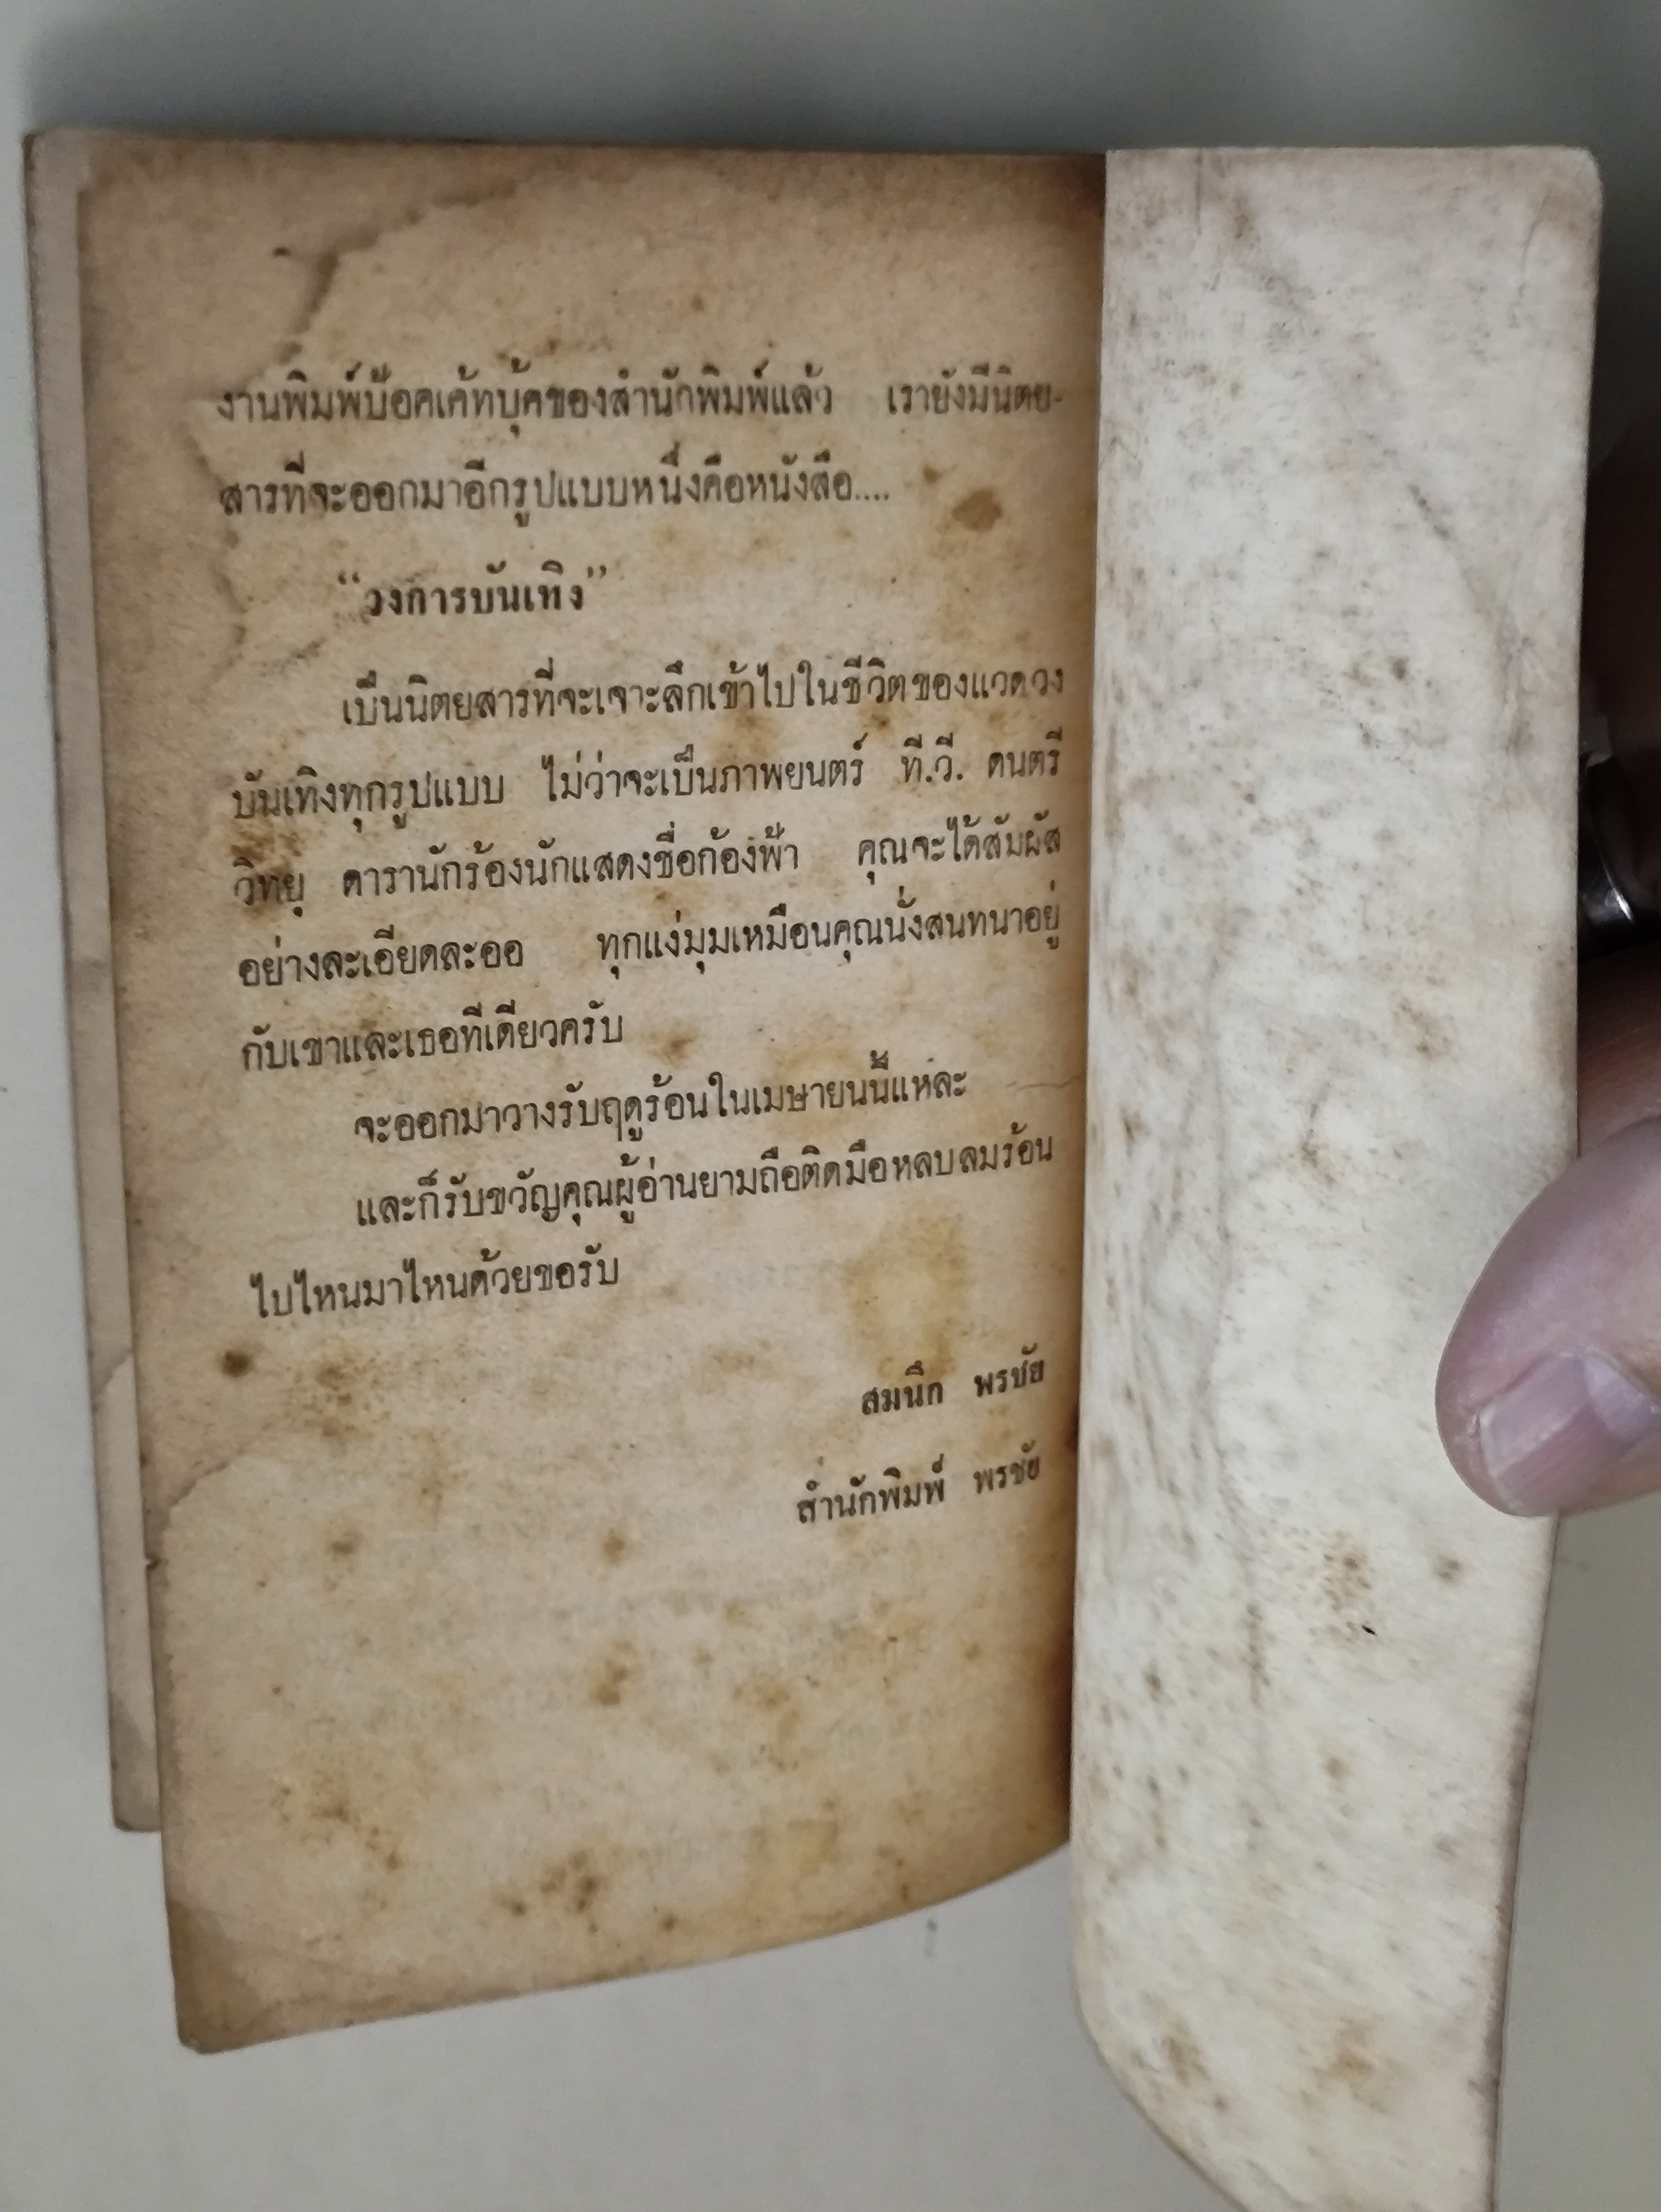 งานพิมพ์ป๊อคเค้ทบุ้คของสำนักพิมพ์แล้ว เรายังมีนิตย-
สารที่จะออกมาอีกรูปแบบหนึ่งคือหนังสือ....
“วงการบันเทิง”
เป็นนิตยสารที่จะเจาะลึกเข้าไปในชีวิตของแวดวง
บันเทิงทุกรูปแบบ ไม่ว่าจะเป็นภาพยนตร์ ที.วี. ดนตรี
วิทยุ ดารานักร้องนักแสดงชื่อก้องฟ้า คุณจะได้สัมผัส
อย่างละเอียดละออ ทุกแง่มุมเหมือนคุณนั่งสนทนาอยู่
กับเขาและเธอทีเดียวครับ
จะออกมาวางรับฤดูร้อนในเมษายนนี้แหละ
และก็รับขวัญคุณผู้อ่านยามถือติดมือหลบลมร้อน
ไปไหนมาไหนด้วยขอรับ
สมนึก พรชัย
สำนักพิมพ์ พรชัย